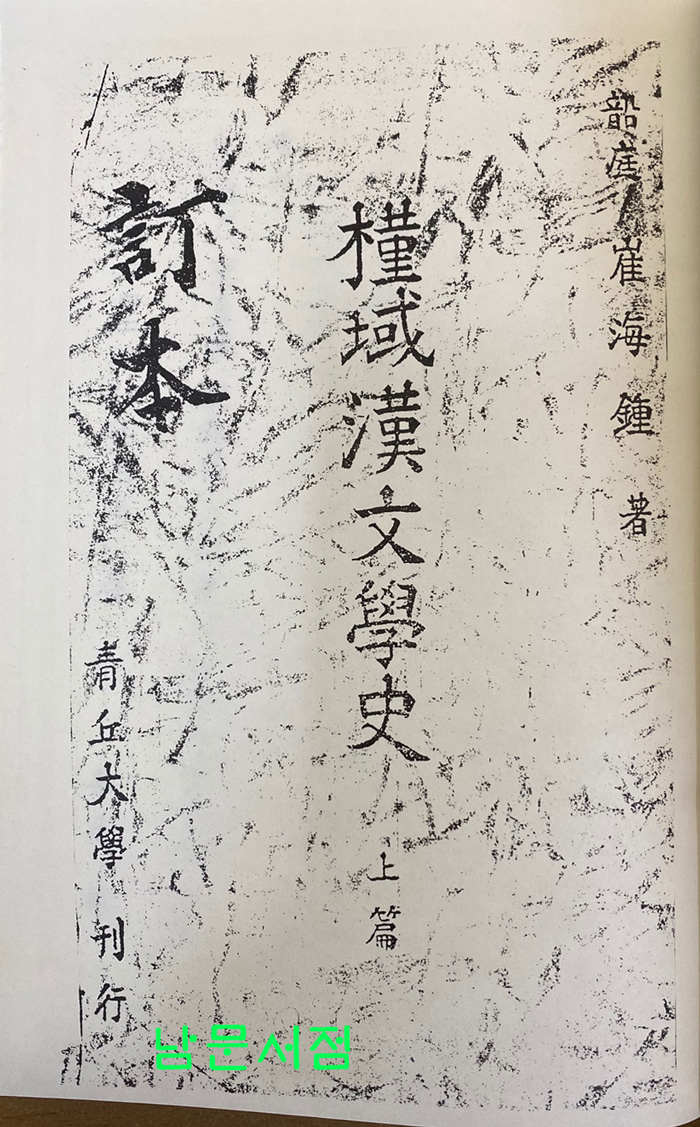 韶庭 崔海鍾 著
槿域漢文學史 上篇
訂本
靑丘大學 刊行
남문서점